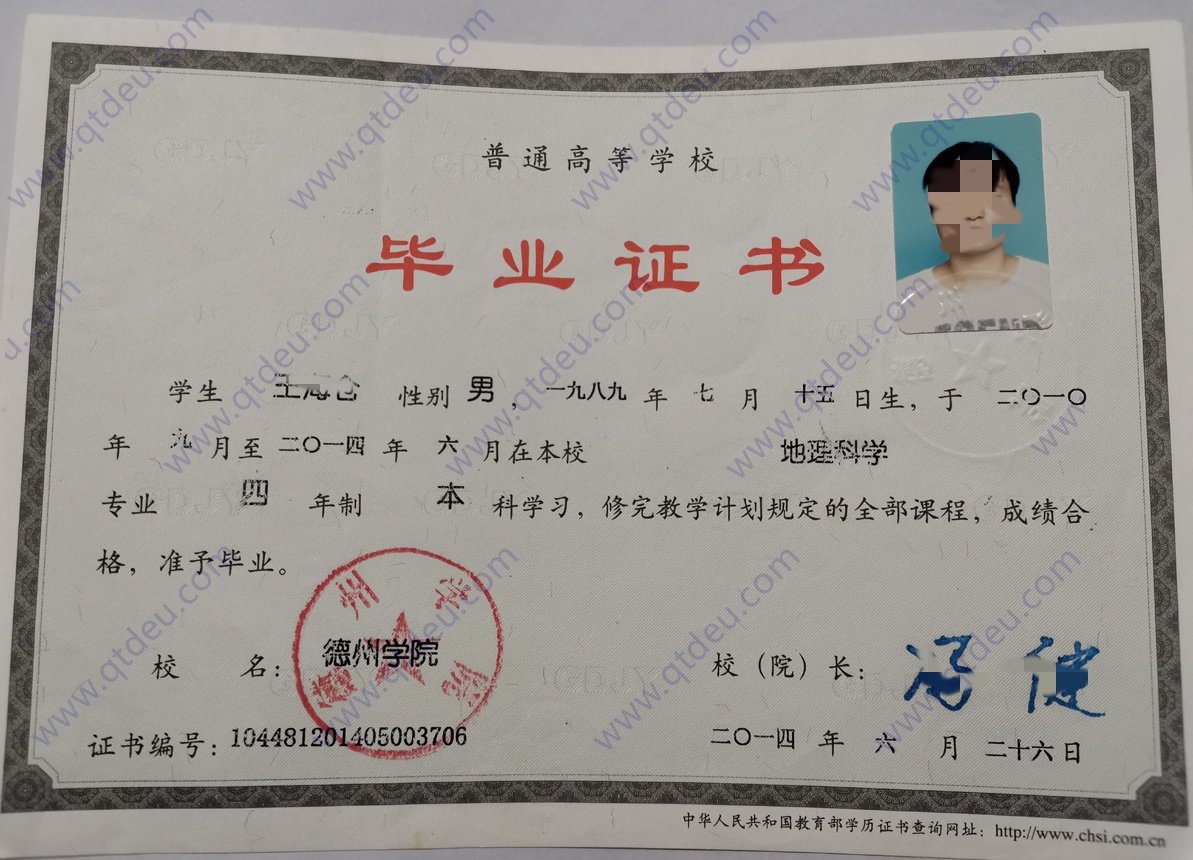 普通高等学校
毕业证书
学生 性别 男，一九八九 年 七 月 十五 日生，于 二〇一〇
年 九 月至 二〇一四 年 六 月在本校 地理科学
专业 四 年制 本 科学习，修完教学计划规定的全部课程，成绩合
格，准予毕业。
校 名：德州学院
校（院）长：冯
证书编号：104481201405003706
二〇一四 年 六 月 二十六日
中华人民共和国教育部学历证书查询网址：http://www.chsi.com.cn
www.qtdeu.com